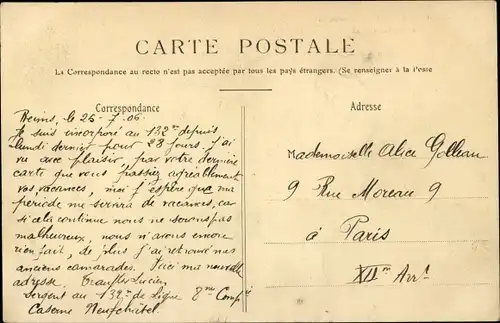 CARTE POSTALE
La Correspondance au recto n'est pas acceptée par tous les pays étrangers. (Se renseigner à la Poste
Correspondance
Reims, le 26-7-06
Je suis incorporé au 132me depuis
lundi dernier pour 28 jours. J'ai
vu avec plaisir, par votre dernière
carte que vous passiez agréablement
vos vacances, moi j'espère que ma
période me servira de vacances, car
si cela continue nous ne serons pas
malheureux, nous n'avons encore
rien fait, de plus j'ai retrouvé mes
anciens camarades. Voici ma nouvelle
adresse. Lucien
Sergent au 132me de Ligne 8me Comp ie
Caserne Neufchâtel.
Adresse
Mademoiselle Alice
9 Rue Moreau 9
à Paris
XIIme Arrt